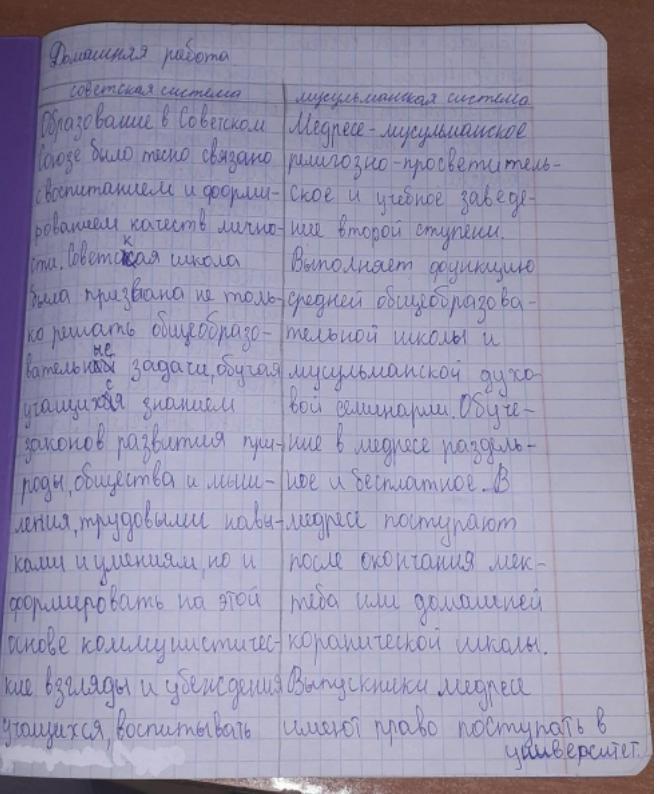 Домашняя работа
советская система
Образование в Советском
Союзе было тесно связано
с воспитанием и форми-
рованием качеств лично-
сти. Советская школа
была призвана не толь-
ко решать общеобразо-
вательные задачи, обучая
учащихся знанием
законов развития при-
роды, общества и мыш-
ления, трудовыми навы-
ками и умениям, но и
формировать на этой
основе коммунистичес-
кие взгляды и убеждения
учащихся, воспитывать
мусульманская система
Медресе - мусульманское
религозно-просветитель-
ское и учебное заведе-
ние второй ступени.
Выполняет функцию
средней общеобразова-
тельной школы и
мусульманской духо-
вой семинарии. Обуче-
ние в медресе раздель-
ное и бесплатное. В
медресе поступают
после окончания мек-
теба или домашней
коранической школы.
Выпускники медресе
имеют право поступать в
университет.